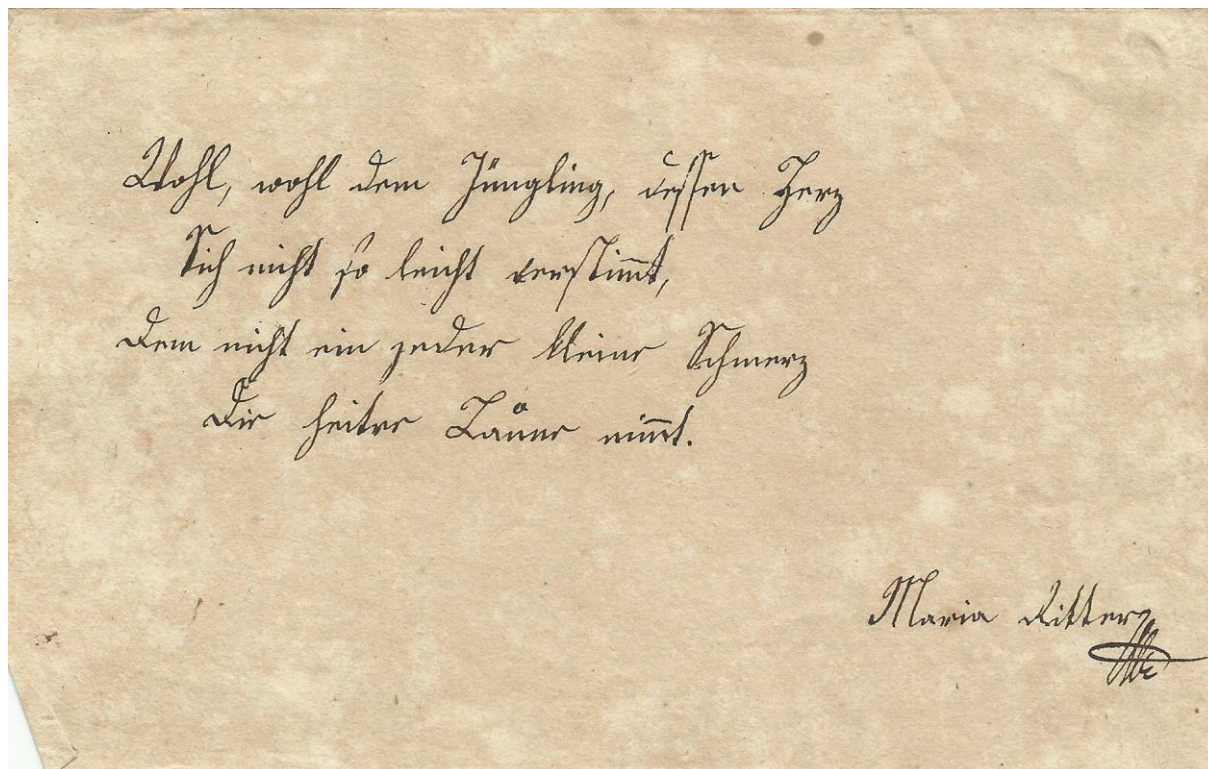 Wohl, wohl dem Jüngling, dessen Herz
Sich nicht so leicht verstimmt,
Dem nicht ein jeder kleine Schmerz
Die heitre Laune nimmt.
Maria Ritter